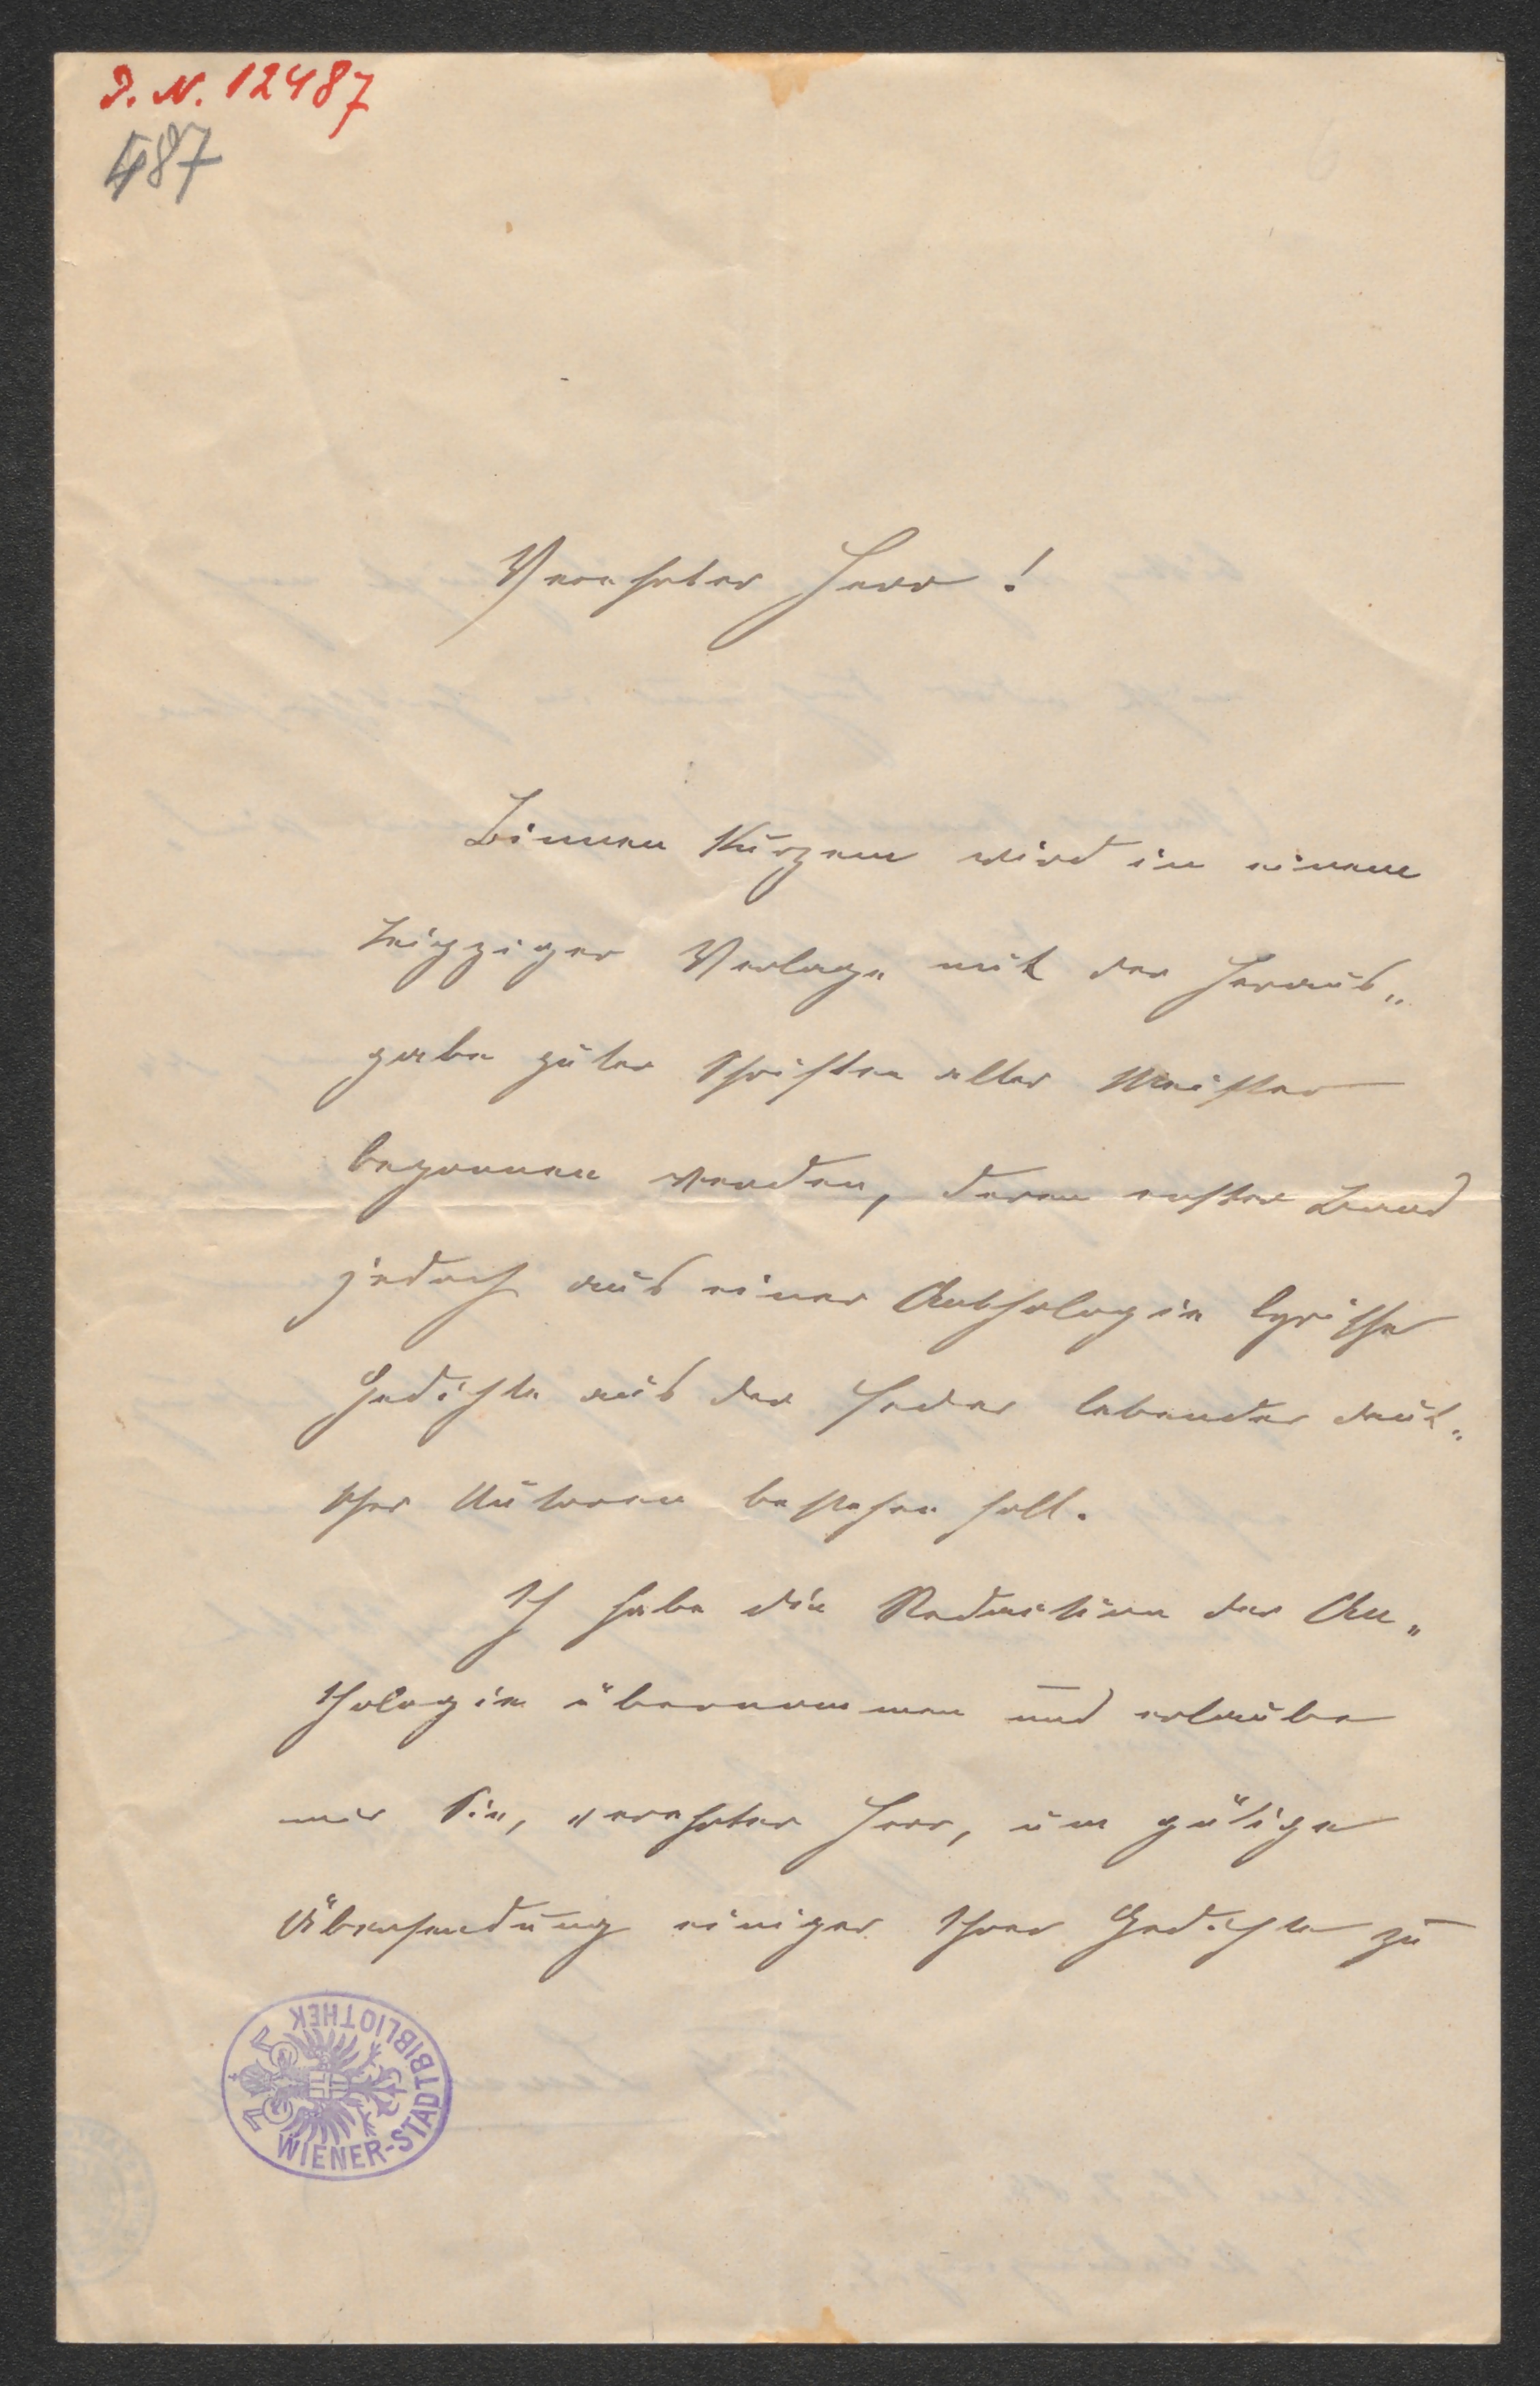 J. N. 12487
487
Verehrter Herr!
Binnen Kurzem wird in einem
Leipziger Verlage mit der Heraus„
gabe guter Schriften alter Meister
begonnen werden, deren erster Band
jedoch aus einer Anthologie lyrischer
Gedichte aus der Feder lebender deut„
scher Autoren bestehen soll.
Ich habe die Redaction der An„
thologie übernommen und erlaube
mir Sie, verehrter Herr, um gütige
Übersendung einiger Ihrer Gedichte zu
WIENER-STADTBIBLIOTHEK